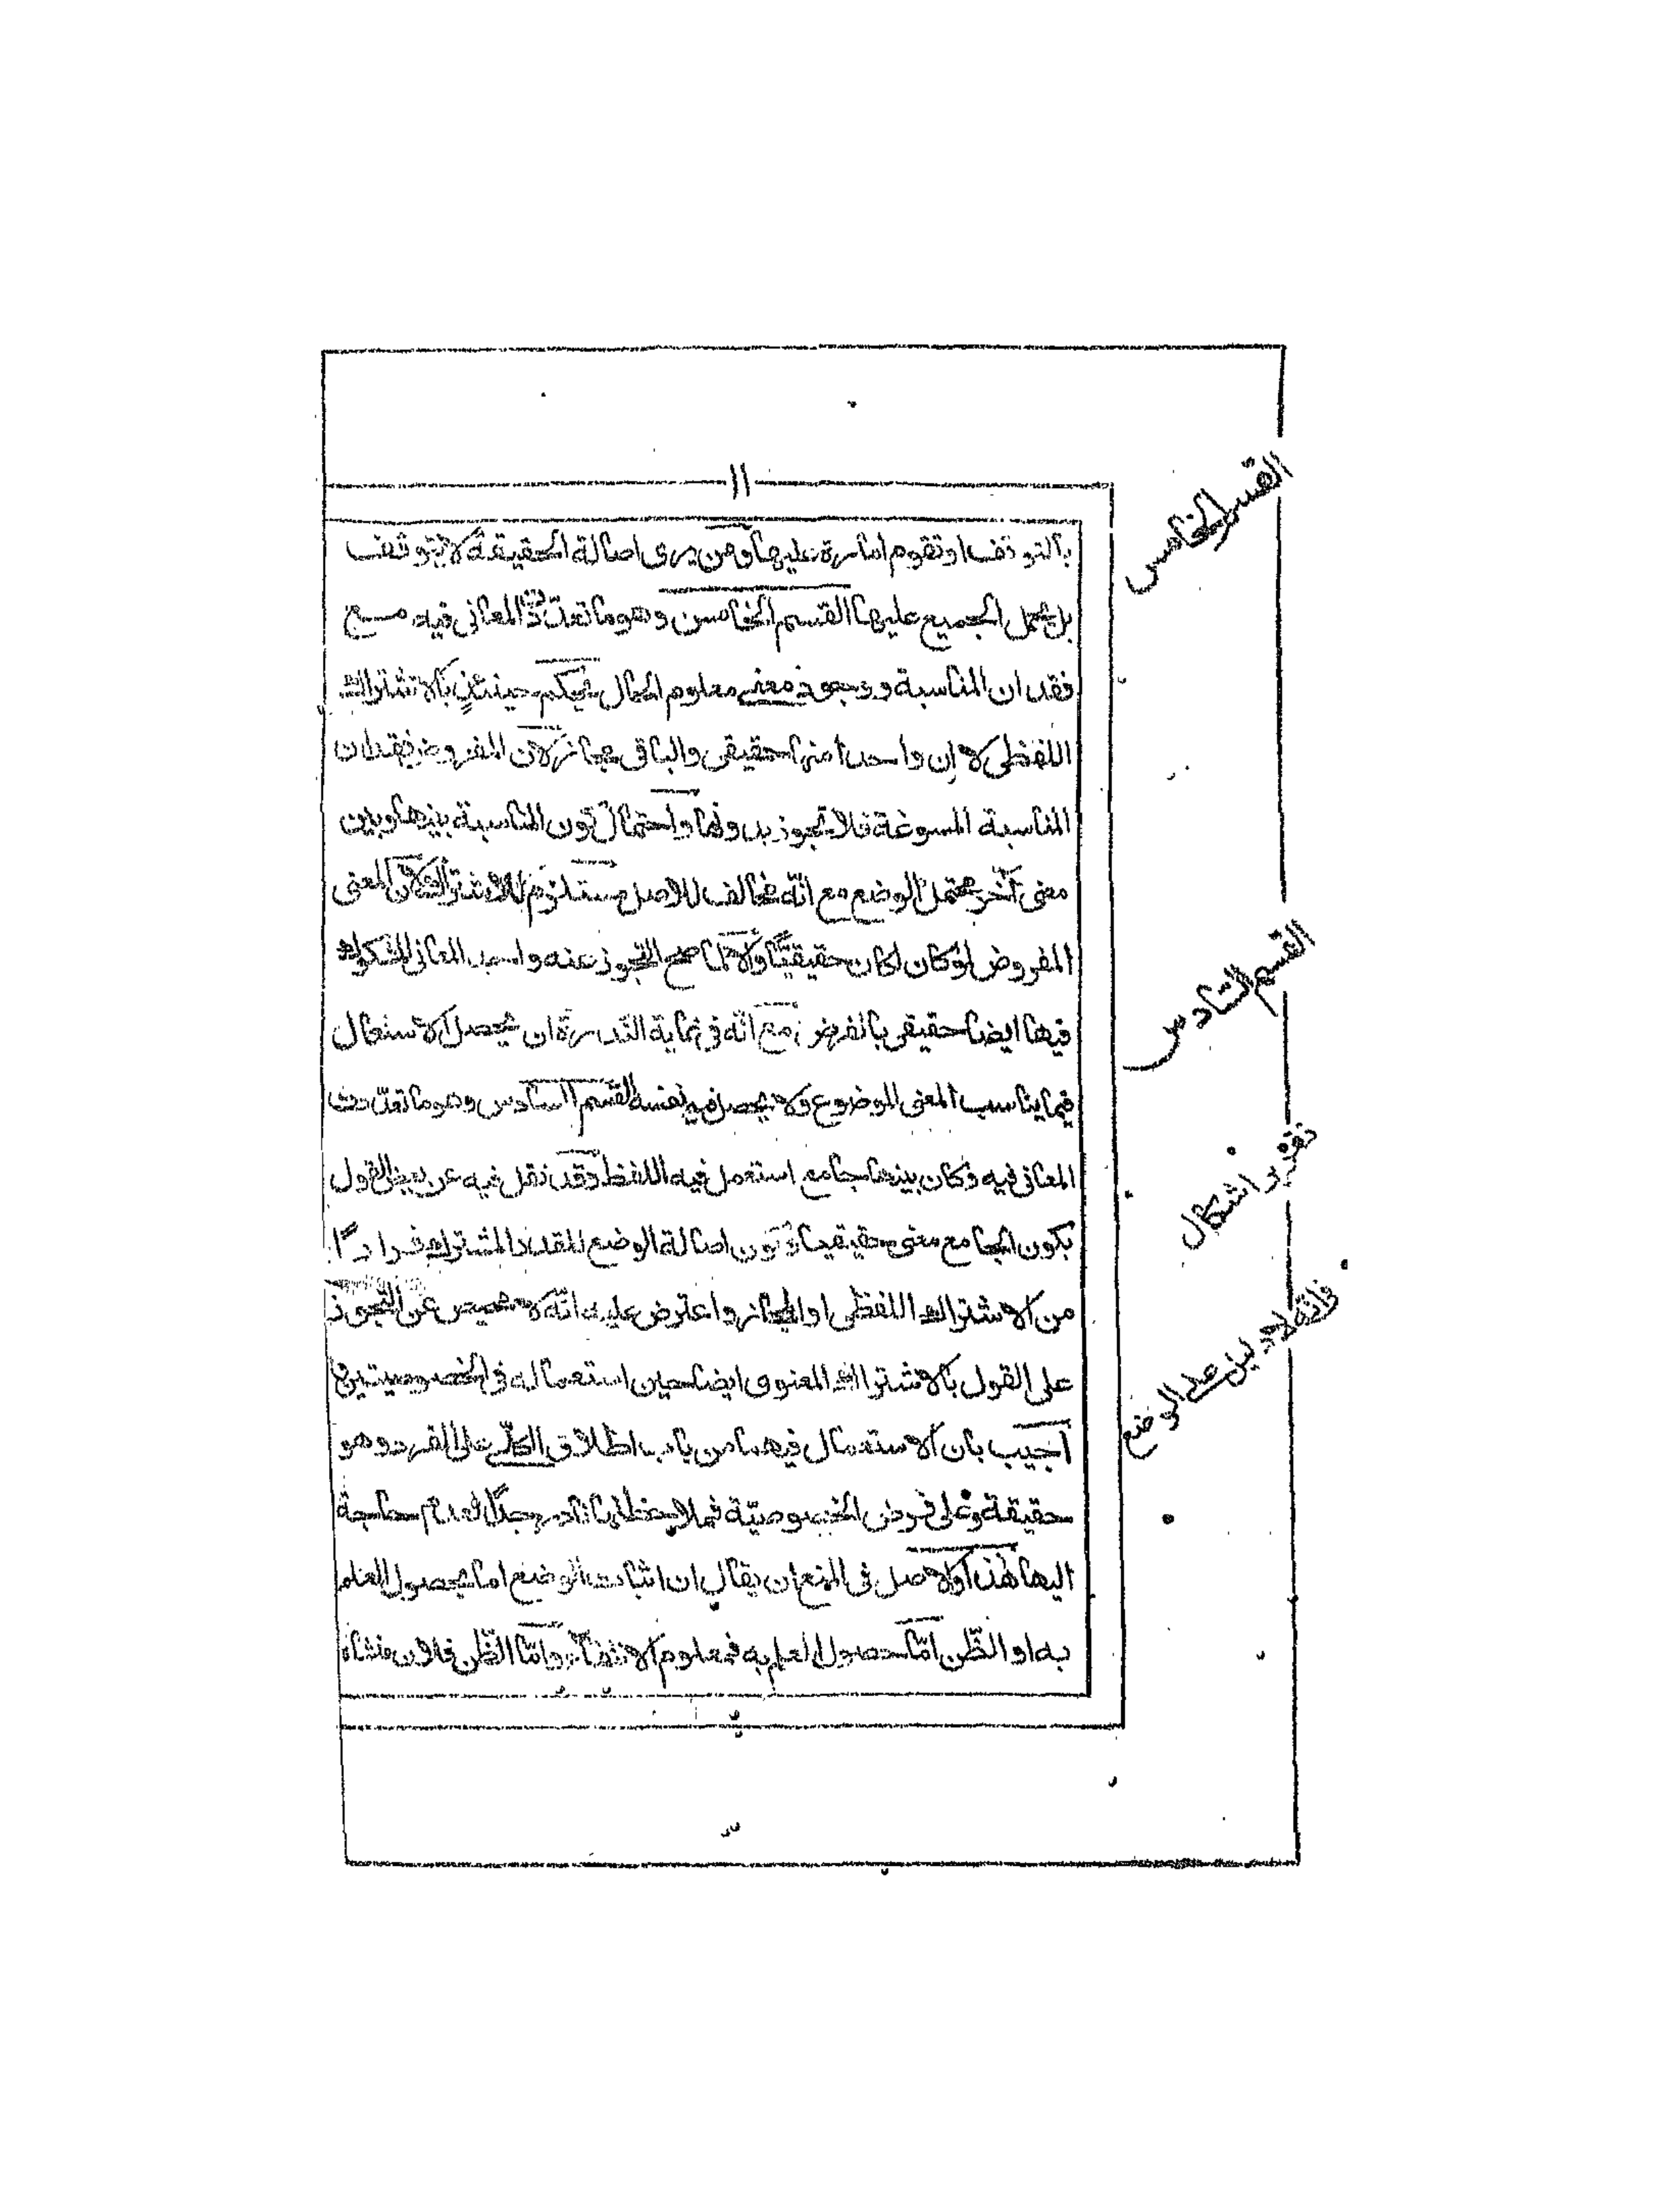 ١١
بالتوقف او تقوم امارة عليها ومن يرى اصالة الحقيقة لا يتوقف
بل يحمل الجميع عليها القسم الخامس وهو ما تعددت المعانى فيه مع
فقدان المناسبة ووجود معنى معلوم الحال فيحكم حينئذٍ بالاشتراك
اللفظى لا ان واحدا منها حقيقى والباقى مجاز لان المفروض فقدان
المناسبة المسوغة فلا تجوز بدونها واحتمال كون المناسبة بينها وبين
معنى آخر محتمل الوضع مع انّه مخالف للاصل مستلزم للاشتراك لان المعنى
المفروض لو كان لكان حقيقيًّا والا لما صح التجوز عنه واحد المعانى المشكوك
فيها ايضا حقيقى بالفرض مع انّه فى غاية الندرة ان يحصل الاستعمال
فيما يناسب المعنى الموضوع ولا يحصل فيه نفسه القسم السادس وهو ما تعدّدت
المعانى فيه وكان بينها جامع استعمل فيه اللفظ وقد نقل فيه عن بعض القول
بكون الجامع معنى حقيقيا وكون اصالة الوضع للقدر المشترك فرارًا
من الاشتراك اللفظى او المجاز واعترض عليه انّه لا محيص عن التجوز
على القول بالاشتراك المعنوى ايضا حين استعماله فى الخصوصيتين
اجيب بان الاستعمال فيهما من باب اطلاق الكلّى على الفرد وهو
حقيقة وعلى فرض الخصوصيّة نادر جدًّا لعدم حاجة
اليها هذا والاصل فى المنع ان يقال ان اثبات الوضع اما بحصول العلم
به او الظّن امّا حصول العلم به فمعلوم الانتفاء وامّا الظّن فلان منشاه
القسم الخامس
القسم السادس
تقرير اشكال
فانّه لا دليل على الوضع